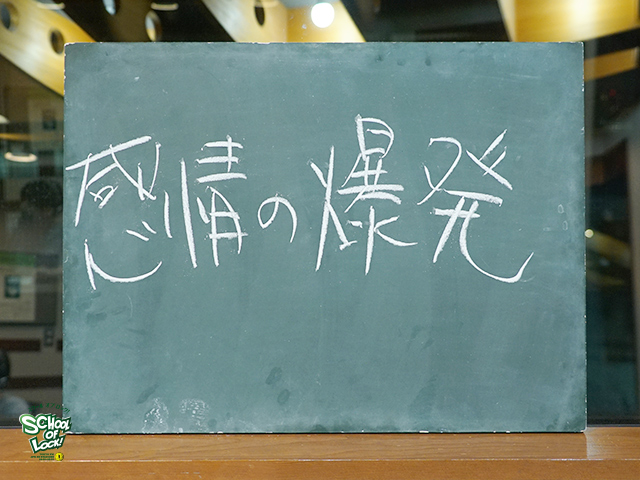 感情の爆発
SCHOOL
OF
LOCK!